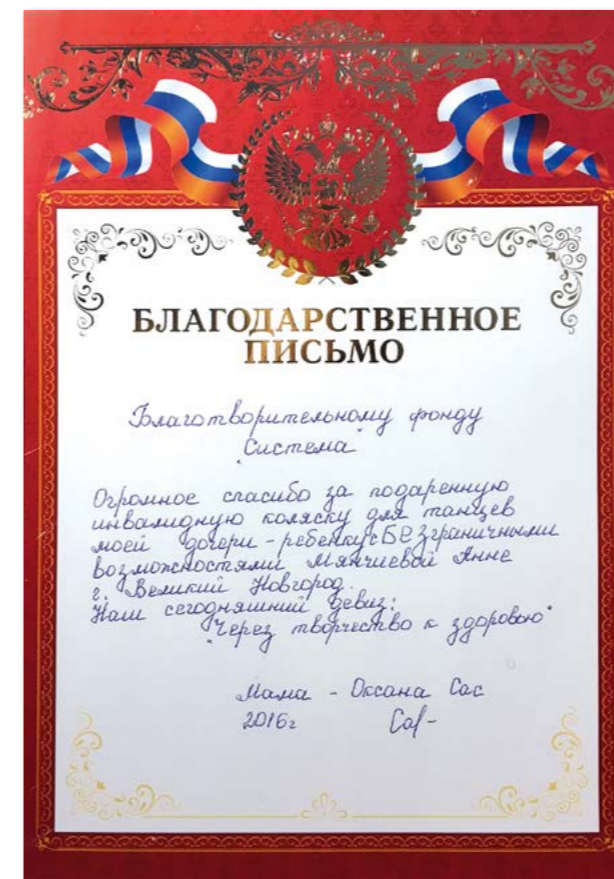 БЛАГОДАРСТВЕННОЕ
ПИСЬМО
Благотворительному фонду
"Система"
Огромное спасибо за подаренную
инвалидную коляску для танцев
моей дочери - ребенку с БЕЗграничными
возможностями Мянчиевой Анне
г. Великий Новгород.
Наш сегодняшний девиз:
"Через творчество к здоровью"
Мама - Оксана Сас
2016г